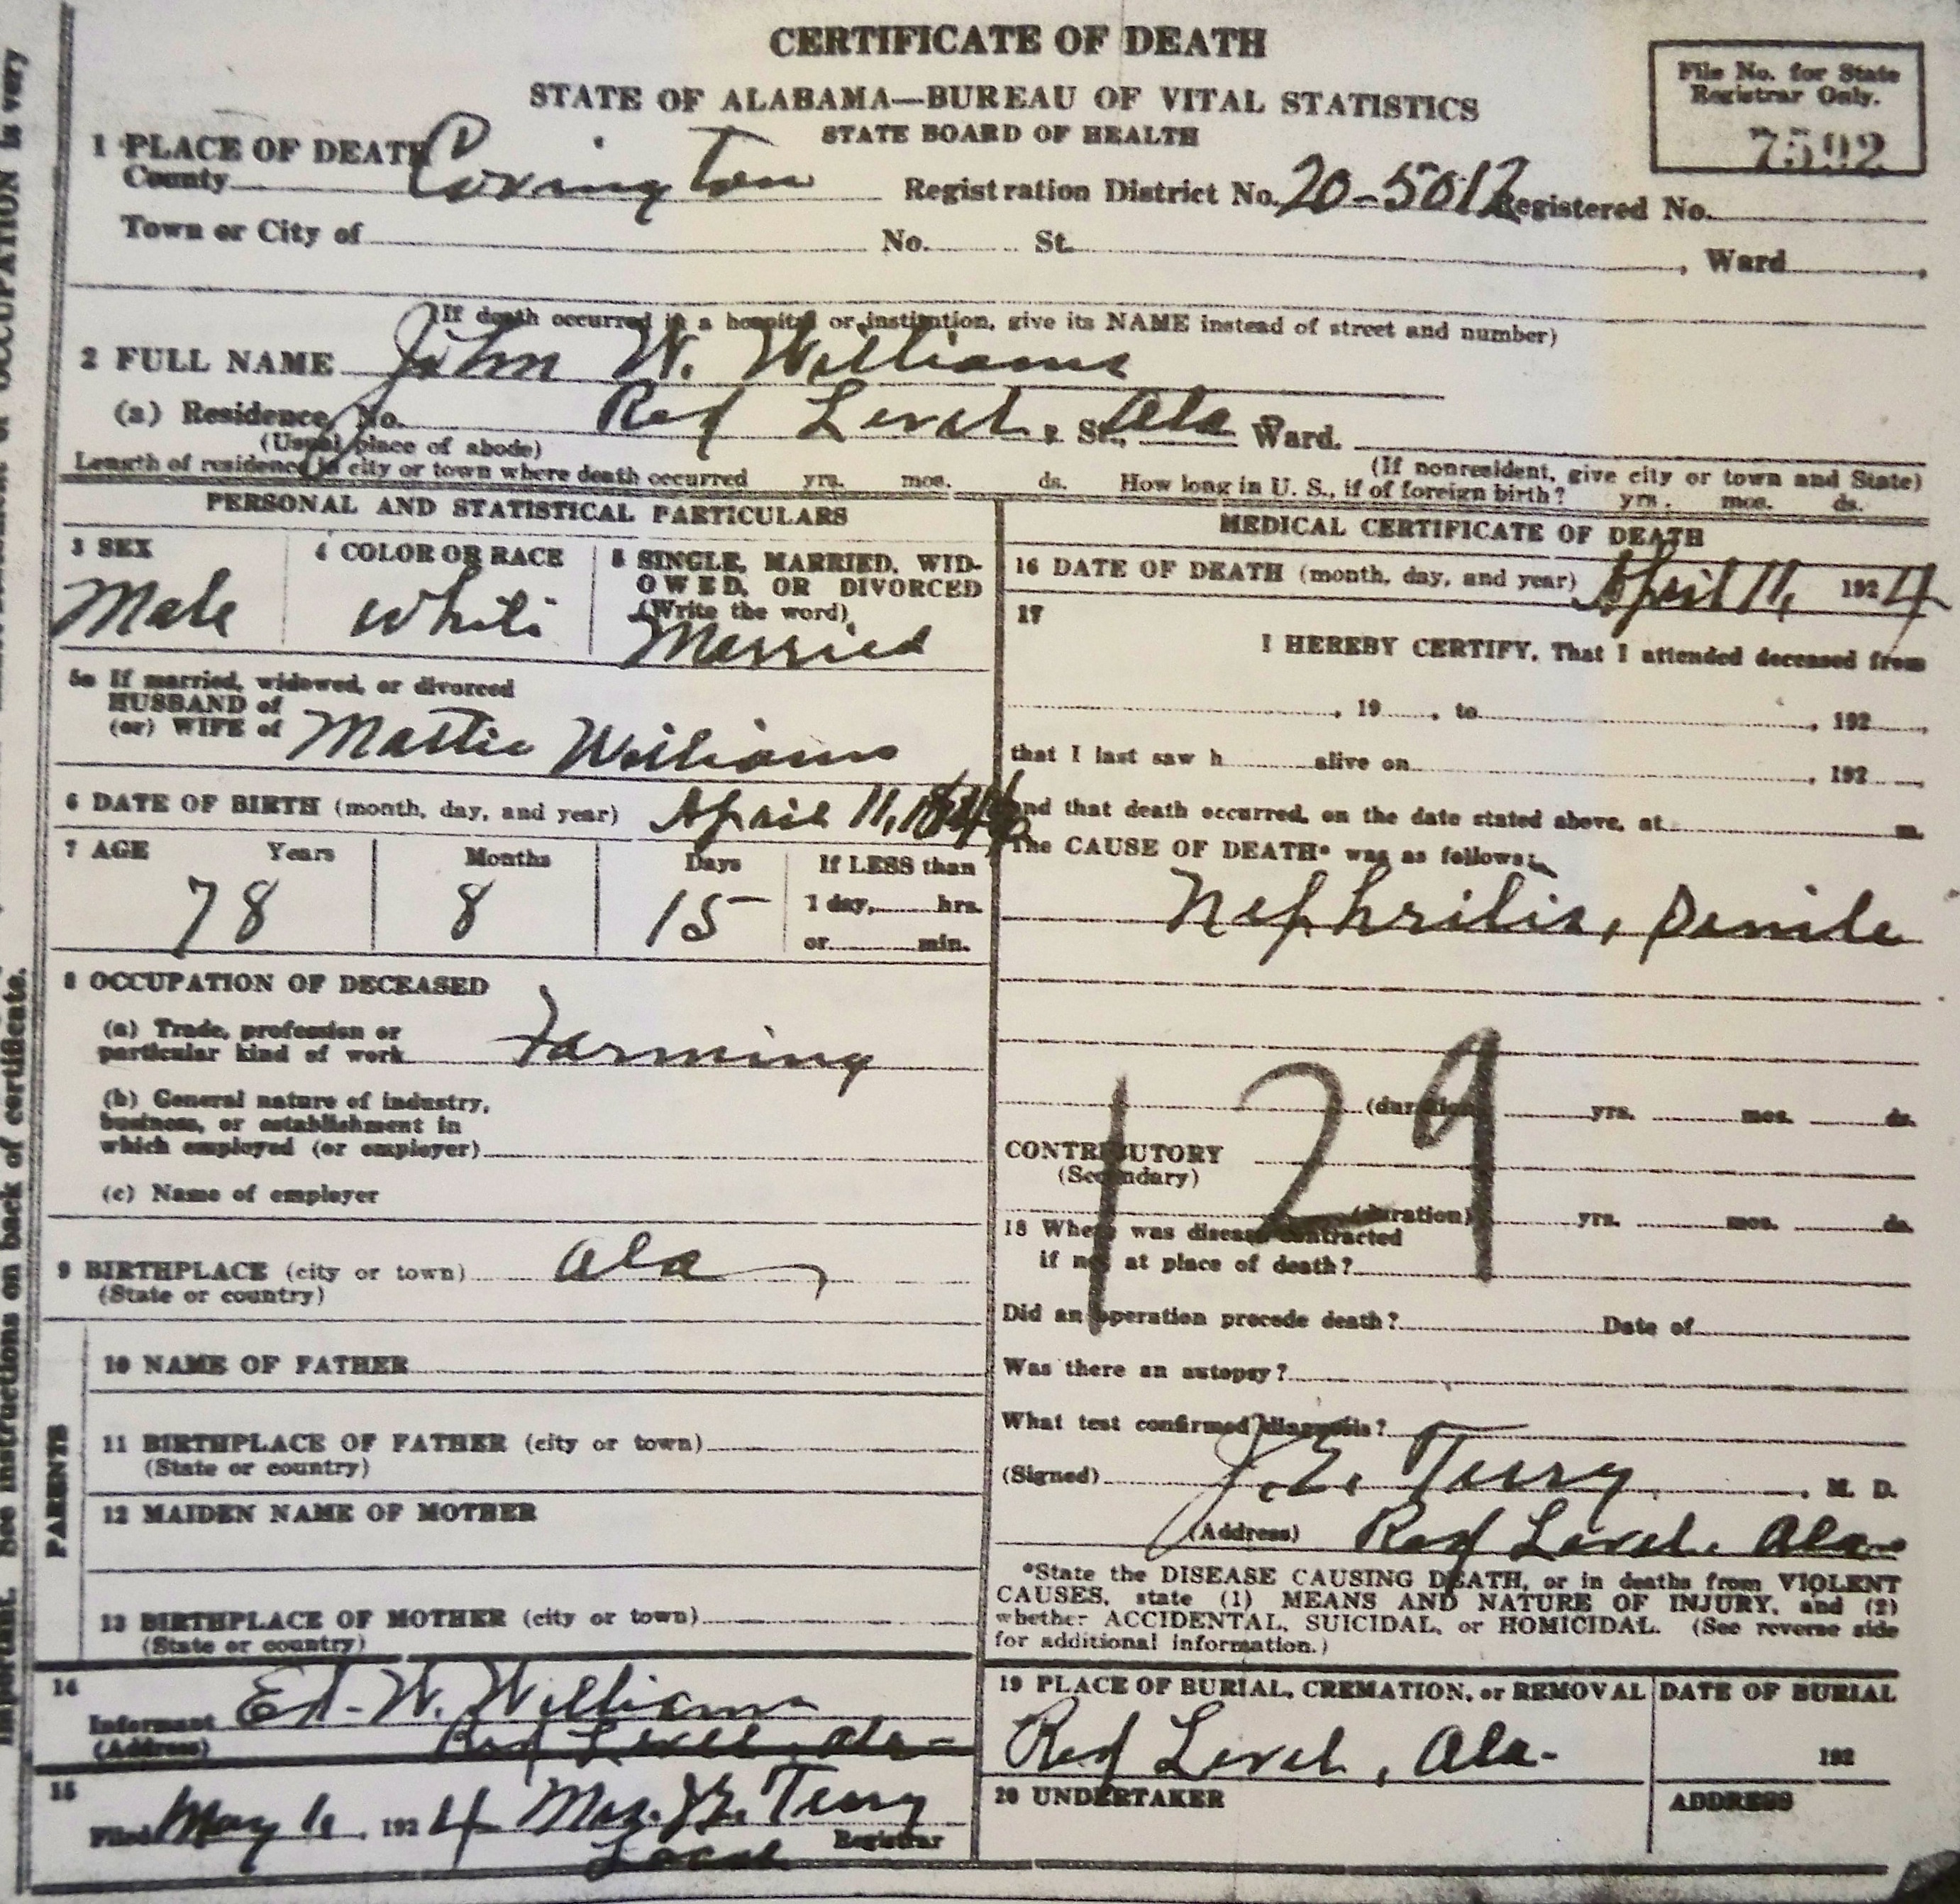 CERTIFICATE OF DEATH
STATE OF ALABAMA—BUREAU OF VITAL STATISTICS
STATE BOARD OF HEALTH
File No. for State
Registrar Only.
7592
1 PLACE OF DEATH
County Covington Registration District No. 20-5012 Registered No.
Town or City of No. St. , Ward ,
(If death occurred in a hospital or institution, give its NAME instead of street and number)
2 FULL NAME John W. Williams
(a) Residence, No. Red Level, St., Ala Ward.
(Usual place of abode)
(If nonresident, give city or town and State)
Length of residence in city or town where death occurred yrs. mos. ds. How long in U. S., if of foreign birth? yrs. mos. ds.
PERSONAL AND STATISTICAL PARTICULARS
3 SEX
Male
4 COLOR OR RACE
White
5 SINGLE, MARRIED, WID-
OWED, OR DIVORCED
(Write the word)
Married
5a If married, widowed, or divorced
HUSBAND of
(or) WIFE of Mattie Williams
6 DATE OF BIRTH (month, day, and year) April 11,
7 AGE Years Months Days If LESS than
78 8 15 1 day, hrs.
or min.
8 OCCUPATION OF DECEASED
(a) Trade, profession or
particular kind of work Farming
(b) General nature of industry,
business, or establishment in
which employed (or employer)
(c) Name of employer
9 BIRTHPLACE (city or town) Ala
(State or country)
PARENTS
10 NAME OF FATHER
11 BIRTHPLACE OF FATHER (city or town)
(State or country)
12 MAIDEN NAME OF MOTHER
13 BIRTHPLACE OF MOTHER (city or town)
(State or country)
14
Informant Ed. W. Williams
(Address) Red Level, Ala-
15
Filed May 1924 Mrs. J.E. Terry
Local Registrar
MEDICAL CERTIFICATE OF DEATH
16 DATE OF DEATH (month, day, and year) April 11, 1924
17
I HEREBY CERTIFY, That I attended deceased from
, 19 , to , 192 ,
that I last saw h alive on , 192 ,
and that death occurred, on the date stated above, at m.
The CAUSE OF DEATH* was as follows:
Nephritis, Senile
129
(duration) yrs. mos. ds.
CONTRIBUTORY
(Secondary)
(duration) yrs. mos. ds.
18 Where was disease contracted
if not at place of death?
Did an operation precede death? Date of
Was there an autopsy?
What test confirmed diagnosis?
(Signed) J.E. Terry , M. D.
(Address) Red Level, Ala-
*State the DISEASE CAUSING DEATH, or in deaths from VIOLENT
CAUSES, state (1) MEANS AND NATURE OF INJURY, and (2)
whether ACCIDENTAL, SUICIDAL, or HOMICIDAL. (See reverse side
for additional information.)
19 PLACE OF BURIAL, CREMATION, or REMOVAL
Red Level, Ala-
DATE OF BURIAL
192
20 UNDERTAKER
ADDRESS
OCCUPATION is very
important. See instructions on back of certificate.